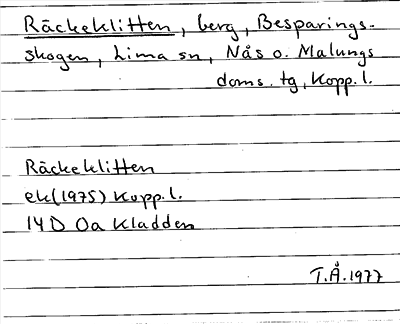 Räckeklitten, berg, Besparings-
skogen, Lima sn, Nås o. Malungs
doms. tg, Kopp. l.
Räckeklitten
ek(1975) Kopp. l.
14D 0a Kladden
T.Å. 1977